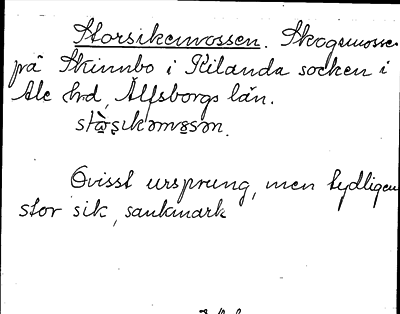 Storsikemossen. Skogsmosse
på Skinnbo i Kilanda socken i
Ale hrd, Älfsborgs län.
Ovisst ursprung, men tydligen
stor sik, sankmark